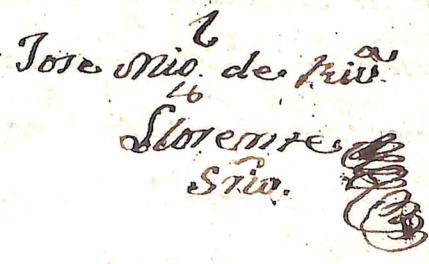 Jose Mıo. de Rivᵃ.
Llorente
Srio.